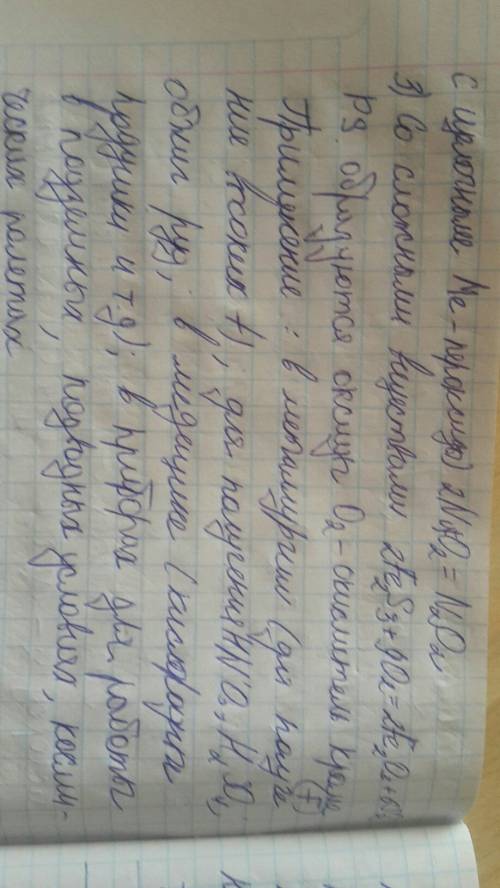 с щелочные Ме - пероксиды 2Na+O2=Na2O2
3) Со сложными веществами 2Fe2S3+9O2=2Fe2O3+6
PS. образуются оксиды O2 - окислитель кроме (F)
Применение: в металлургии (для получе
ния высоких t); для получения HNO3, H2SO4;
обжиг руд; в медицине (кислородные
подушки и т.д); в приборах для работы
в подземных, подводных условиях, косми-
ческих полетах